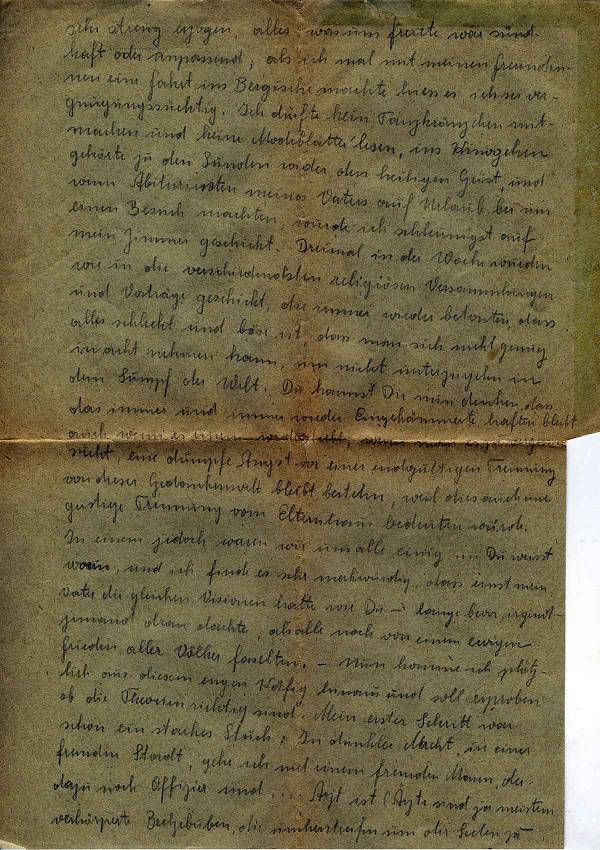 sehr streng erzogen, alles was uns freute war sünd-
haft oder anpassend, als ich mal mit meinen Freundin-
nen eine Fahrt ins Bergische machte hiess es, ich sei ver-
gnügungssüchtig. Ich durfte kein Tanzkränzchen mit-
machen und keine Modeblätter lesen, ins Kinogehen
gehörte zu den Sünden wider den heiligen Geist, und
wenn Abiturienten meines Vaters auf Urlaub bei uns
einen Besuch machten, wurde ich schleunigst auf
mein Zimmer geschickt. Dreimal in der Woche wurden
wir in die verschiedensten religiösen Versammlungen
und Vorträge geschickt, die immer wieder betonten, dass
alles schlecht und böse ist, dass man sich nicht genug
in acht nehmen kann, um nicht unterzugehn in
dem Sumpf der Welt. Du kannst Dir nun denken, dass
das immer und immer wieder Eingehämmerte haften bleibt
auch wenn es einem widerstrebt, wenn man
sucht, eine dumpfe Angst vor einer endgültigen Trennung
von dieser Gedankenwelt bleibt bestehn, weil dies auch eine
geistige Trennung vom Elternhaus bedeuten würde.
In einem jedoch waren wir uns alle einig .... Du weisst
worin, und ich finde es sehr merkwürdig, dass einst mein
Vater die gleichen Visionen hatte wie Du – lange bevor irgend-
jemand dran dachte, als alle noch von einem ewigen
Frieden aller Völker faselten. – Nun komme ich plötz-
lich aus diesem engen Käfig heraus und soll erproben
ob die Theorien richtig sind. Mein erster Schritt war
schon ein starkes Stück: In dunkler Nacht, in einer
fremden Stadt, gehe ich mit einem fremden Mann, der
dazu noch Offizier und .... Arzt ist (Ärzte sind ja meistens
verkörperte Beelzebuben, die umherstreifen um die Seelen zu